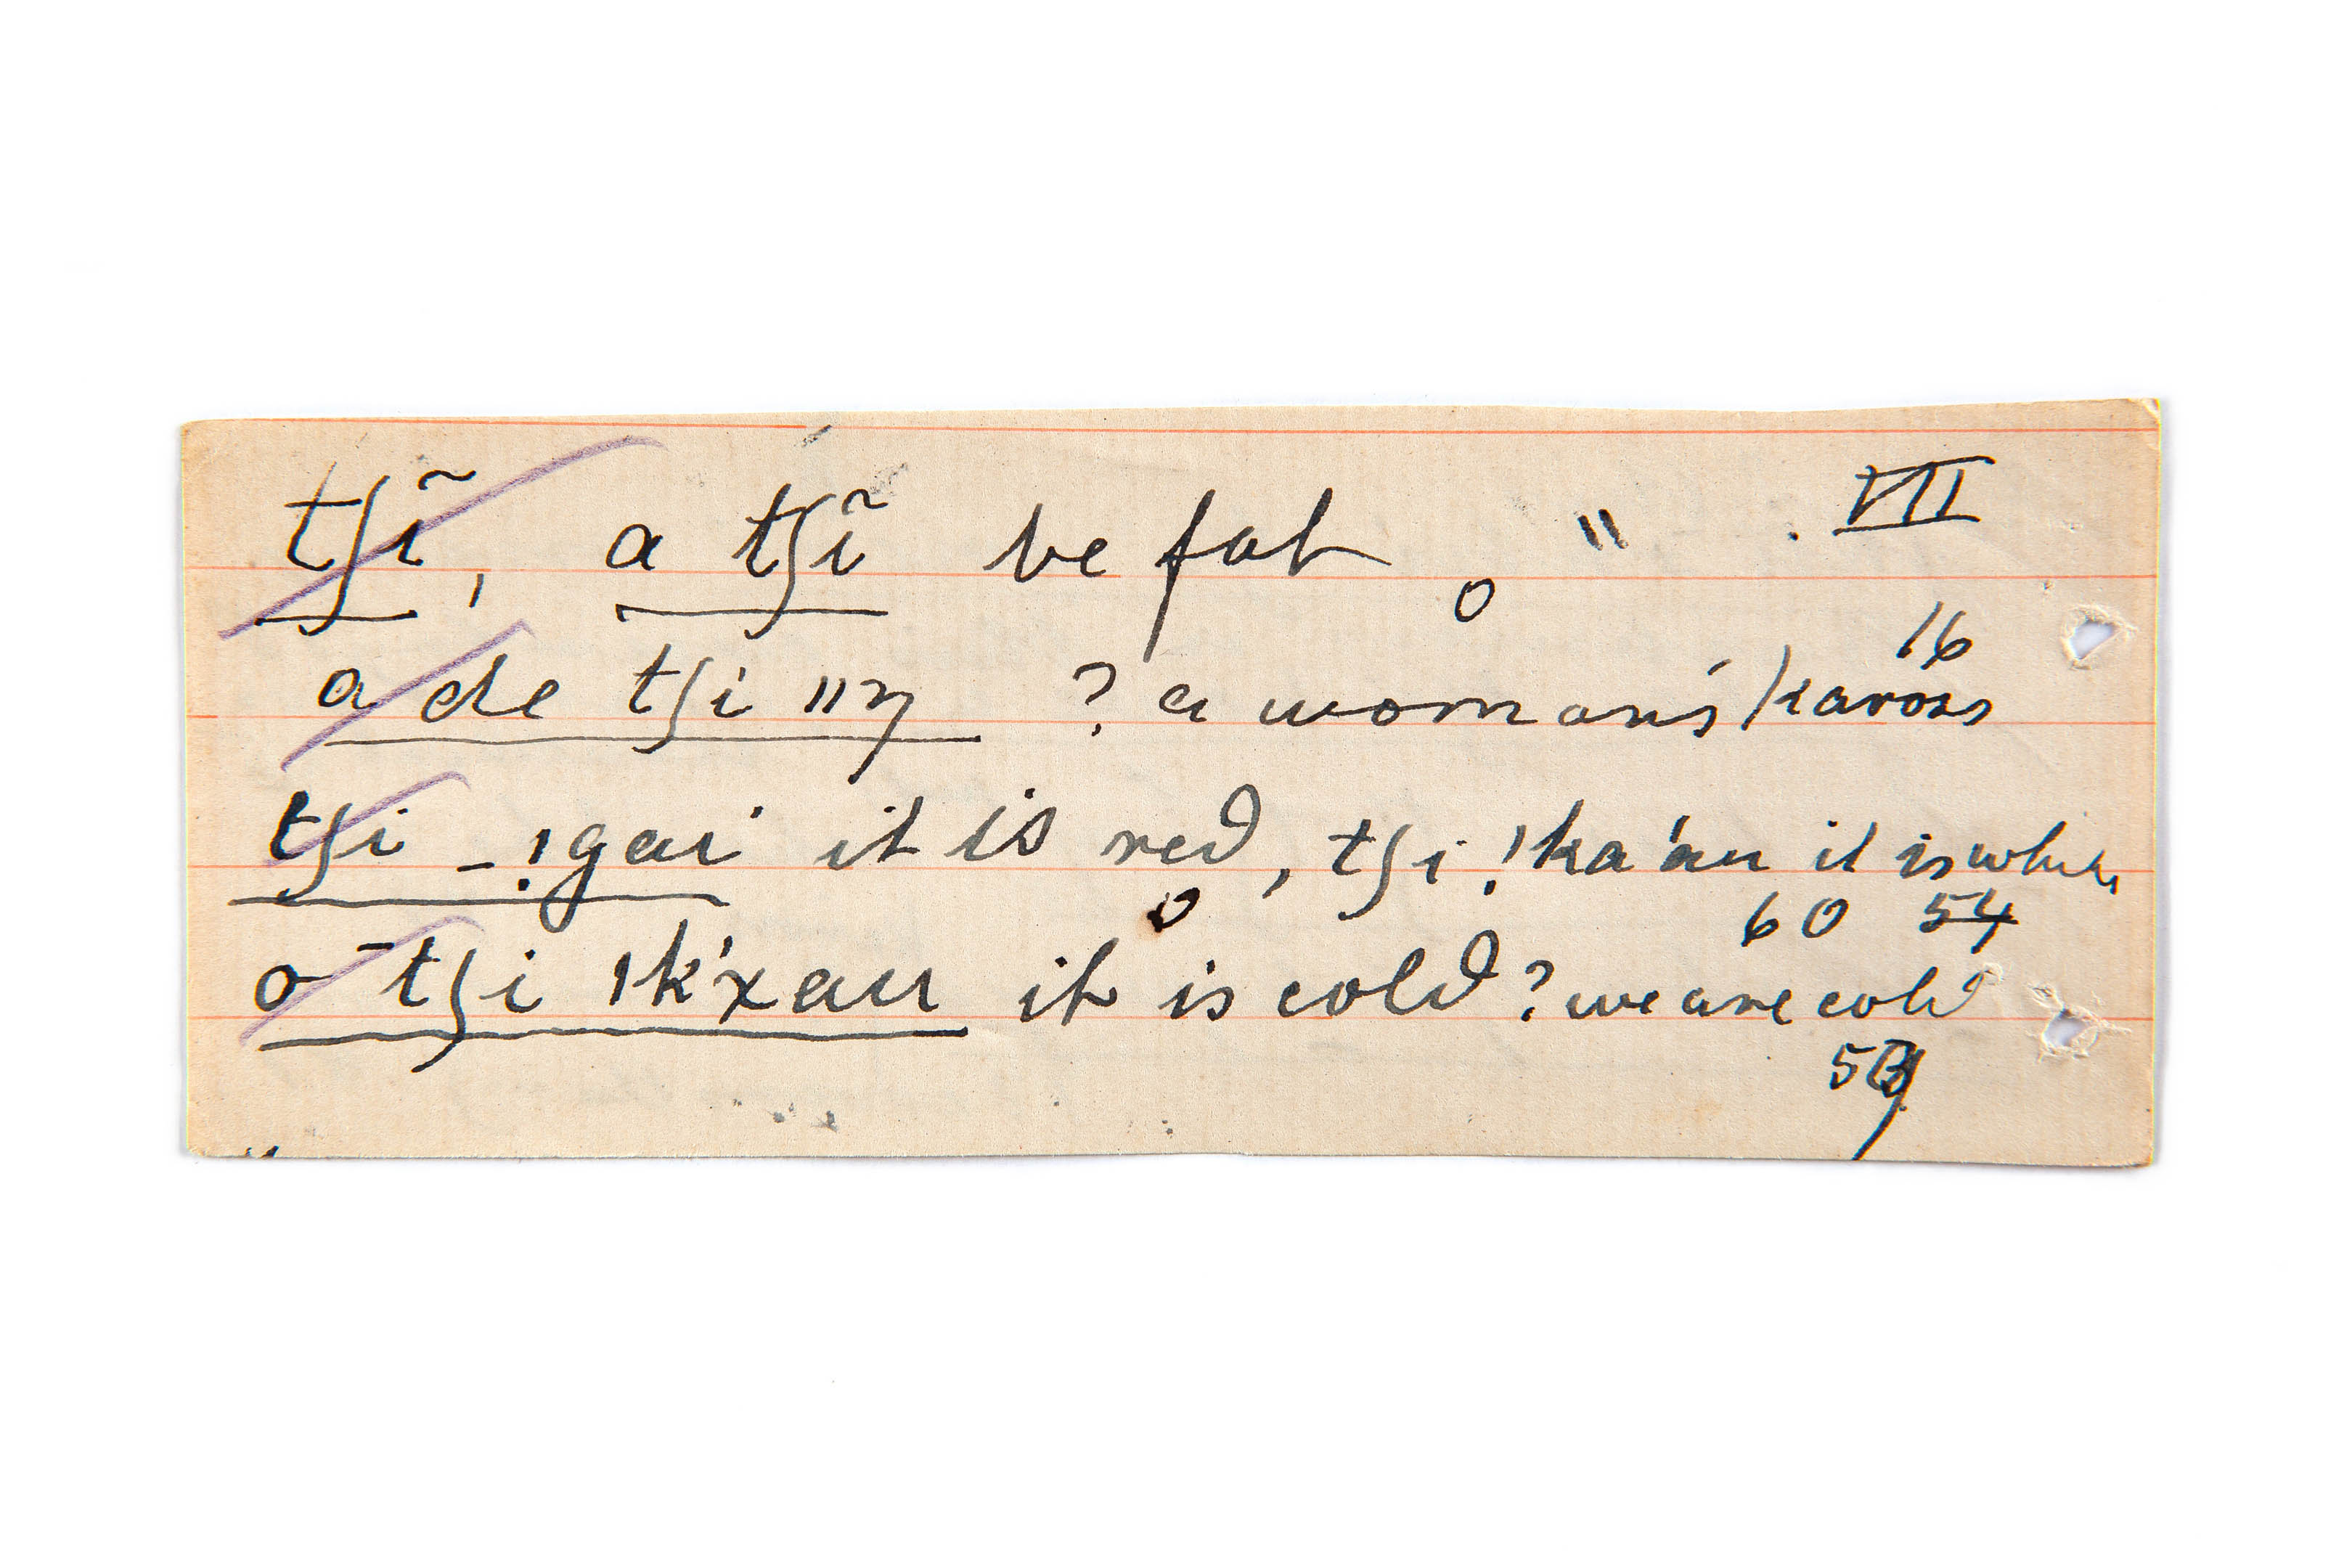 tʃĩ, a tʃĩ be fat 〃 . VII
o 16
a de tʃi ǁŋ ? a woman's kaross
tʃi _ !gai it is red, tʃi !ka'au it is white
o 60 54
o ̄tʃi ǀk'xau it is cold? we are cold